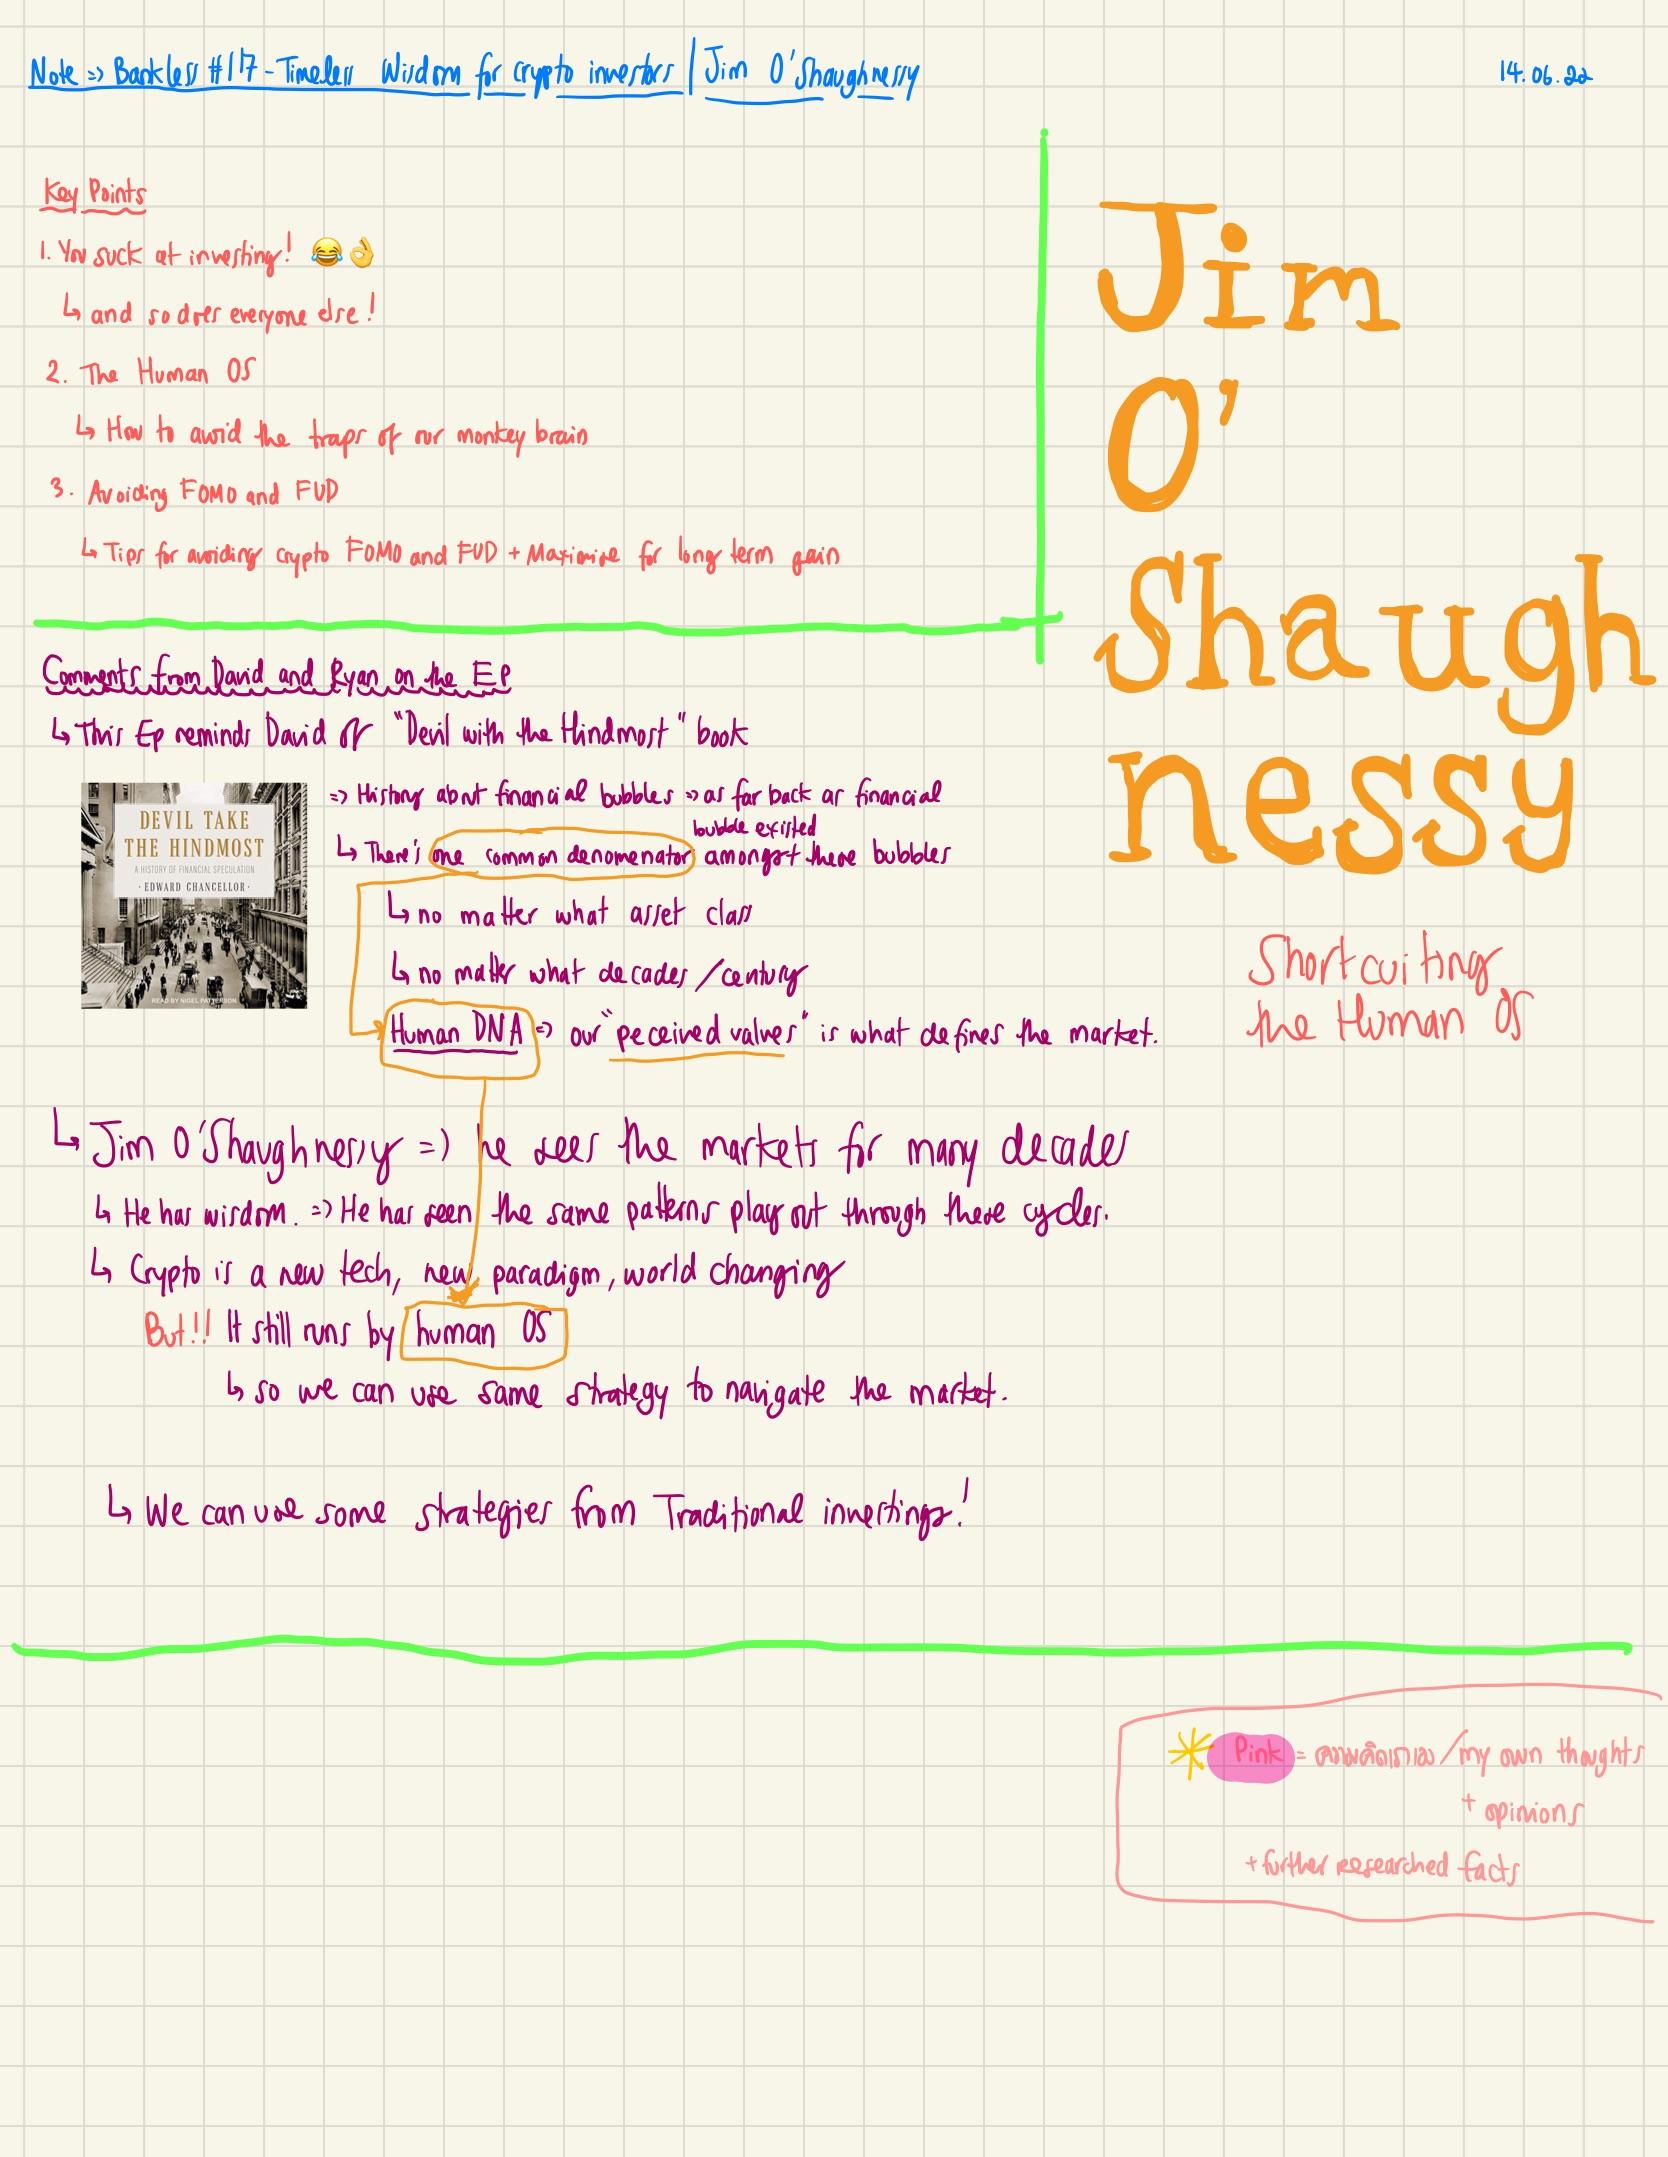 Note => Bankless #117 - Timeless Wisdom for crypto investors | Jim O'Shaughnessy
14.06.22
Key Points
1. You suck at investing! 😂👌
↳ and so does everyone else!
2. The Human OS
↳ How to avoid the traps of our monkey brain
3. Avoiding FOMO and FUD
↳ Tips for avoiding crypto FOMO and FUD + Maximise for long term gain
Jim
O'
Shaugh
nessy
Shortcuiting
the Human OS
Comments from David and Ryan on the EP
↳ This Ep reminds David of "Devil with the Hindmost" book
DEVIL TAKE
THE HINDMOST
A HISTORY OF FINANCIAL SPECULATION
· EDWARD CHANCELLOR ·
READ BY NIGEL PATTERSON
=> History about financial bubbles => as far back as financial
bubble existed
↳ There's one common denomenator amongst these bubbles
↳ no matter what asset class
↳ no matter what decades / century
Human DNA => our "peceived values" is what defines the market.
↳ Jim O'Shaughnessy => he sees the markets for many decades
↳ He has wisdom. => He has seen the same patterns play out through these cycles.
↳ Crypto is a new tech, new paradigm, world changing
But!! It still runs by human OS
↳ so we can use same strategy to navigate the market.
↳ We can use some strategies from Traditional investings!
Pink = ความคิดเราเอง / my own thoughts
+ opinions
+ further researched facts